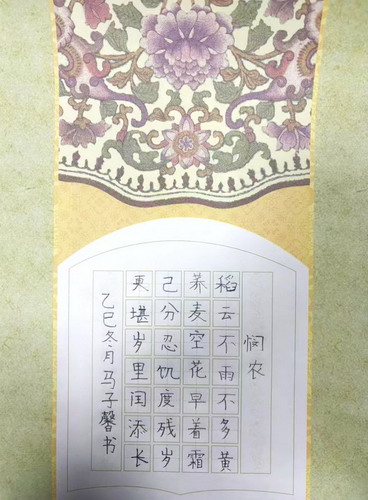 悯农
稻云不雨不多黄
荞麦空花早着霜
己分忍饥度残岁
更堪岁里闰添长
乙巳冬月马子馨书